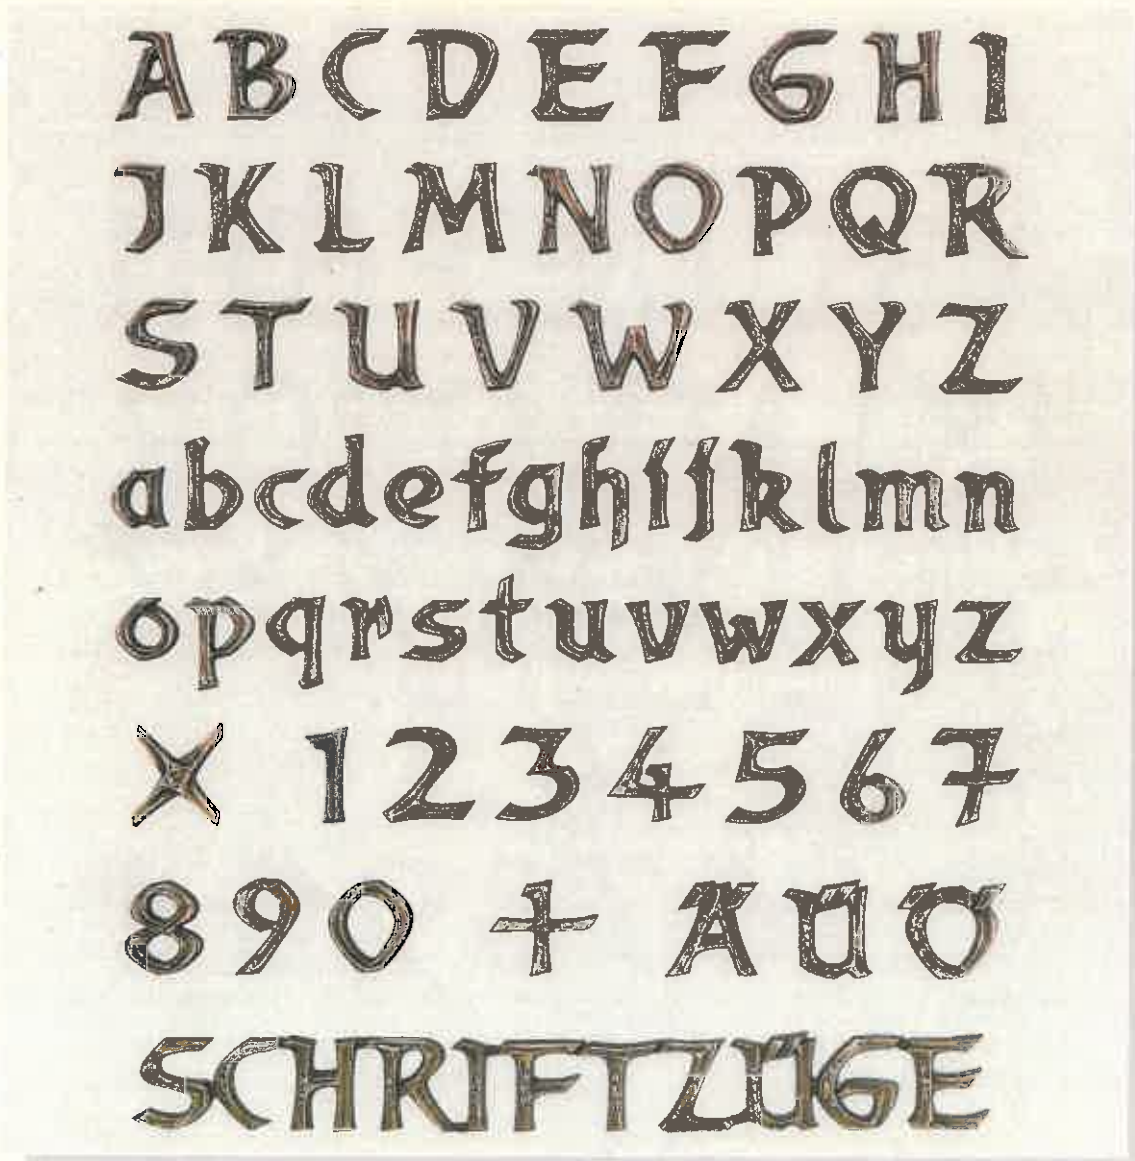 ABCDEFGHI
JKLMNOPQR
STUVWXYZ
abcdefghijklmn
opqrstuvwxyz
× 1234567
890 + ÄÜÖ
SCHRIFTZÜGE